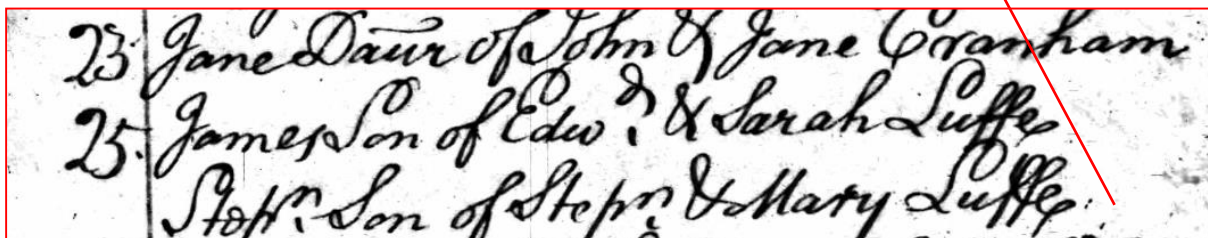 23 Jane Daur of John & Jane Cranham
25. James Son of Edwd. & Sarah Luffe
Stepn. Son of Stepn. & Mary Luffe.